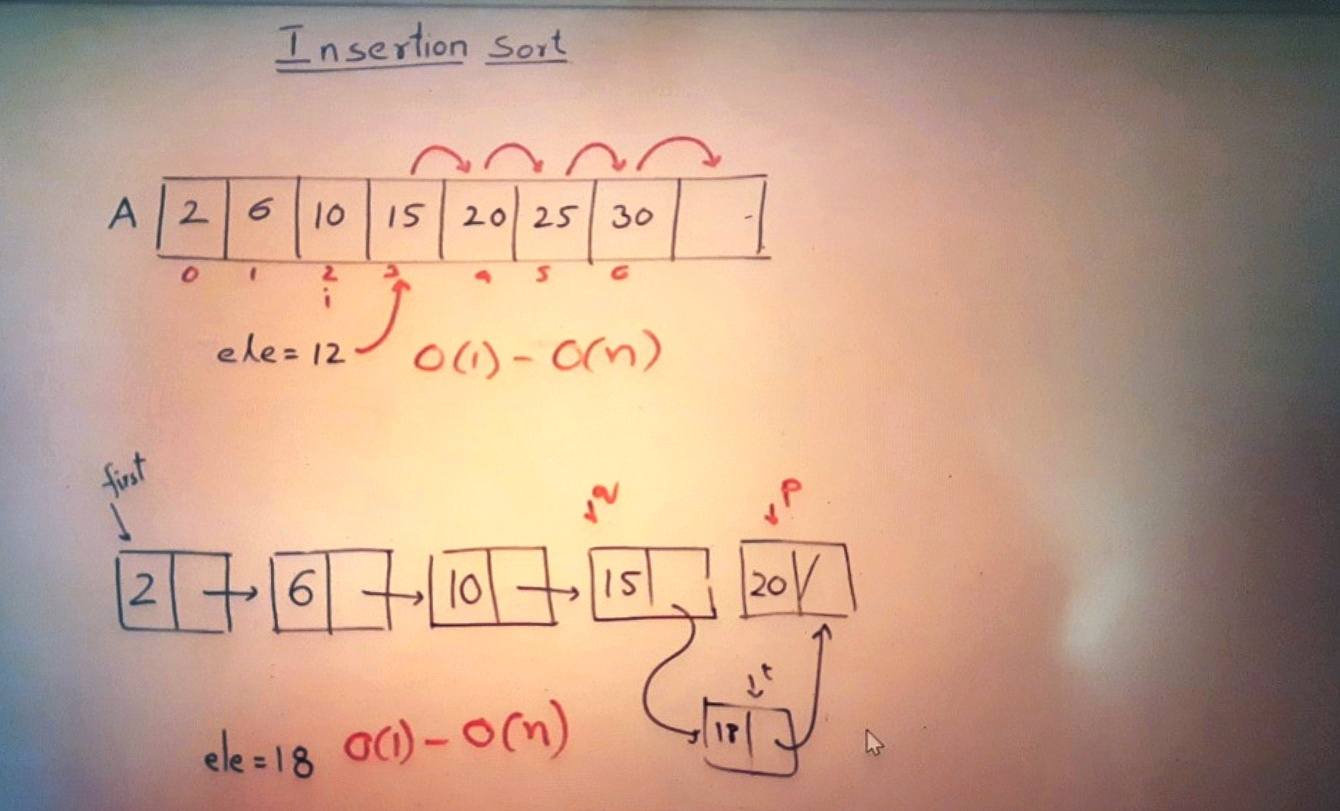 Insertion Sort
A 2 6 10 15 20 25 30
0 1 2 3 4 5 6
i
ele = 12 O(1) - O(n)
first
q p
2 6 10 15 20
t
18
ele = 18 O(1) - O(n)